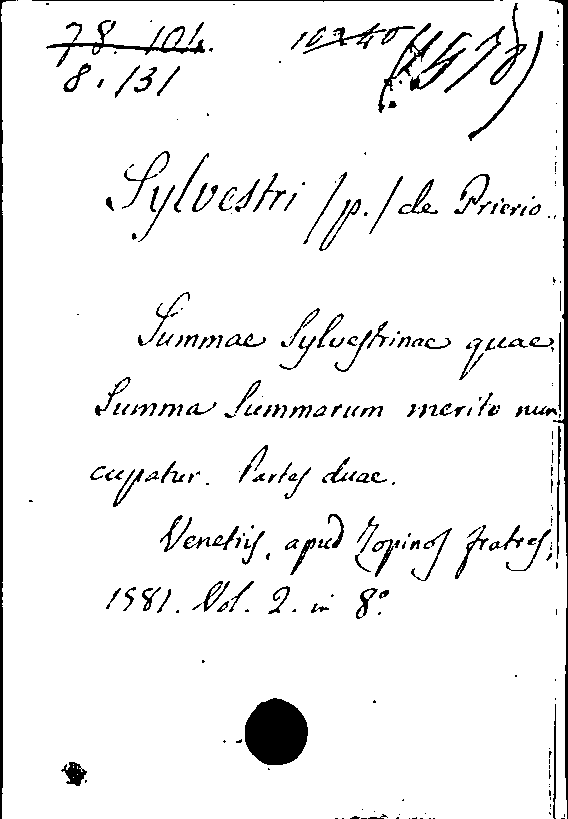 78. 104. 10240
8. 131
Sylvestri /p./ de Prierio.
Summae Sylvestrinae quae
Summa Summarum merito nun
cupatur. Partes duae.
Venetiis, apud Zopinos fratres,
1581. Vol. 2. in 8º.